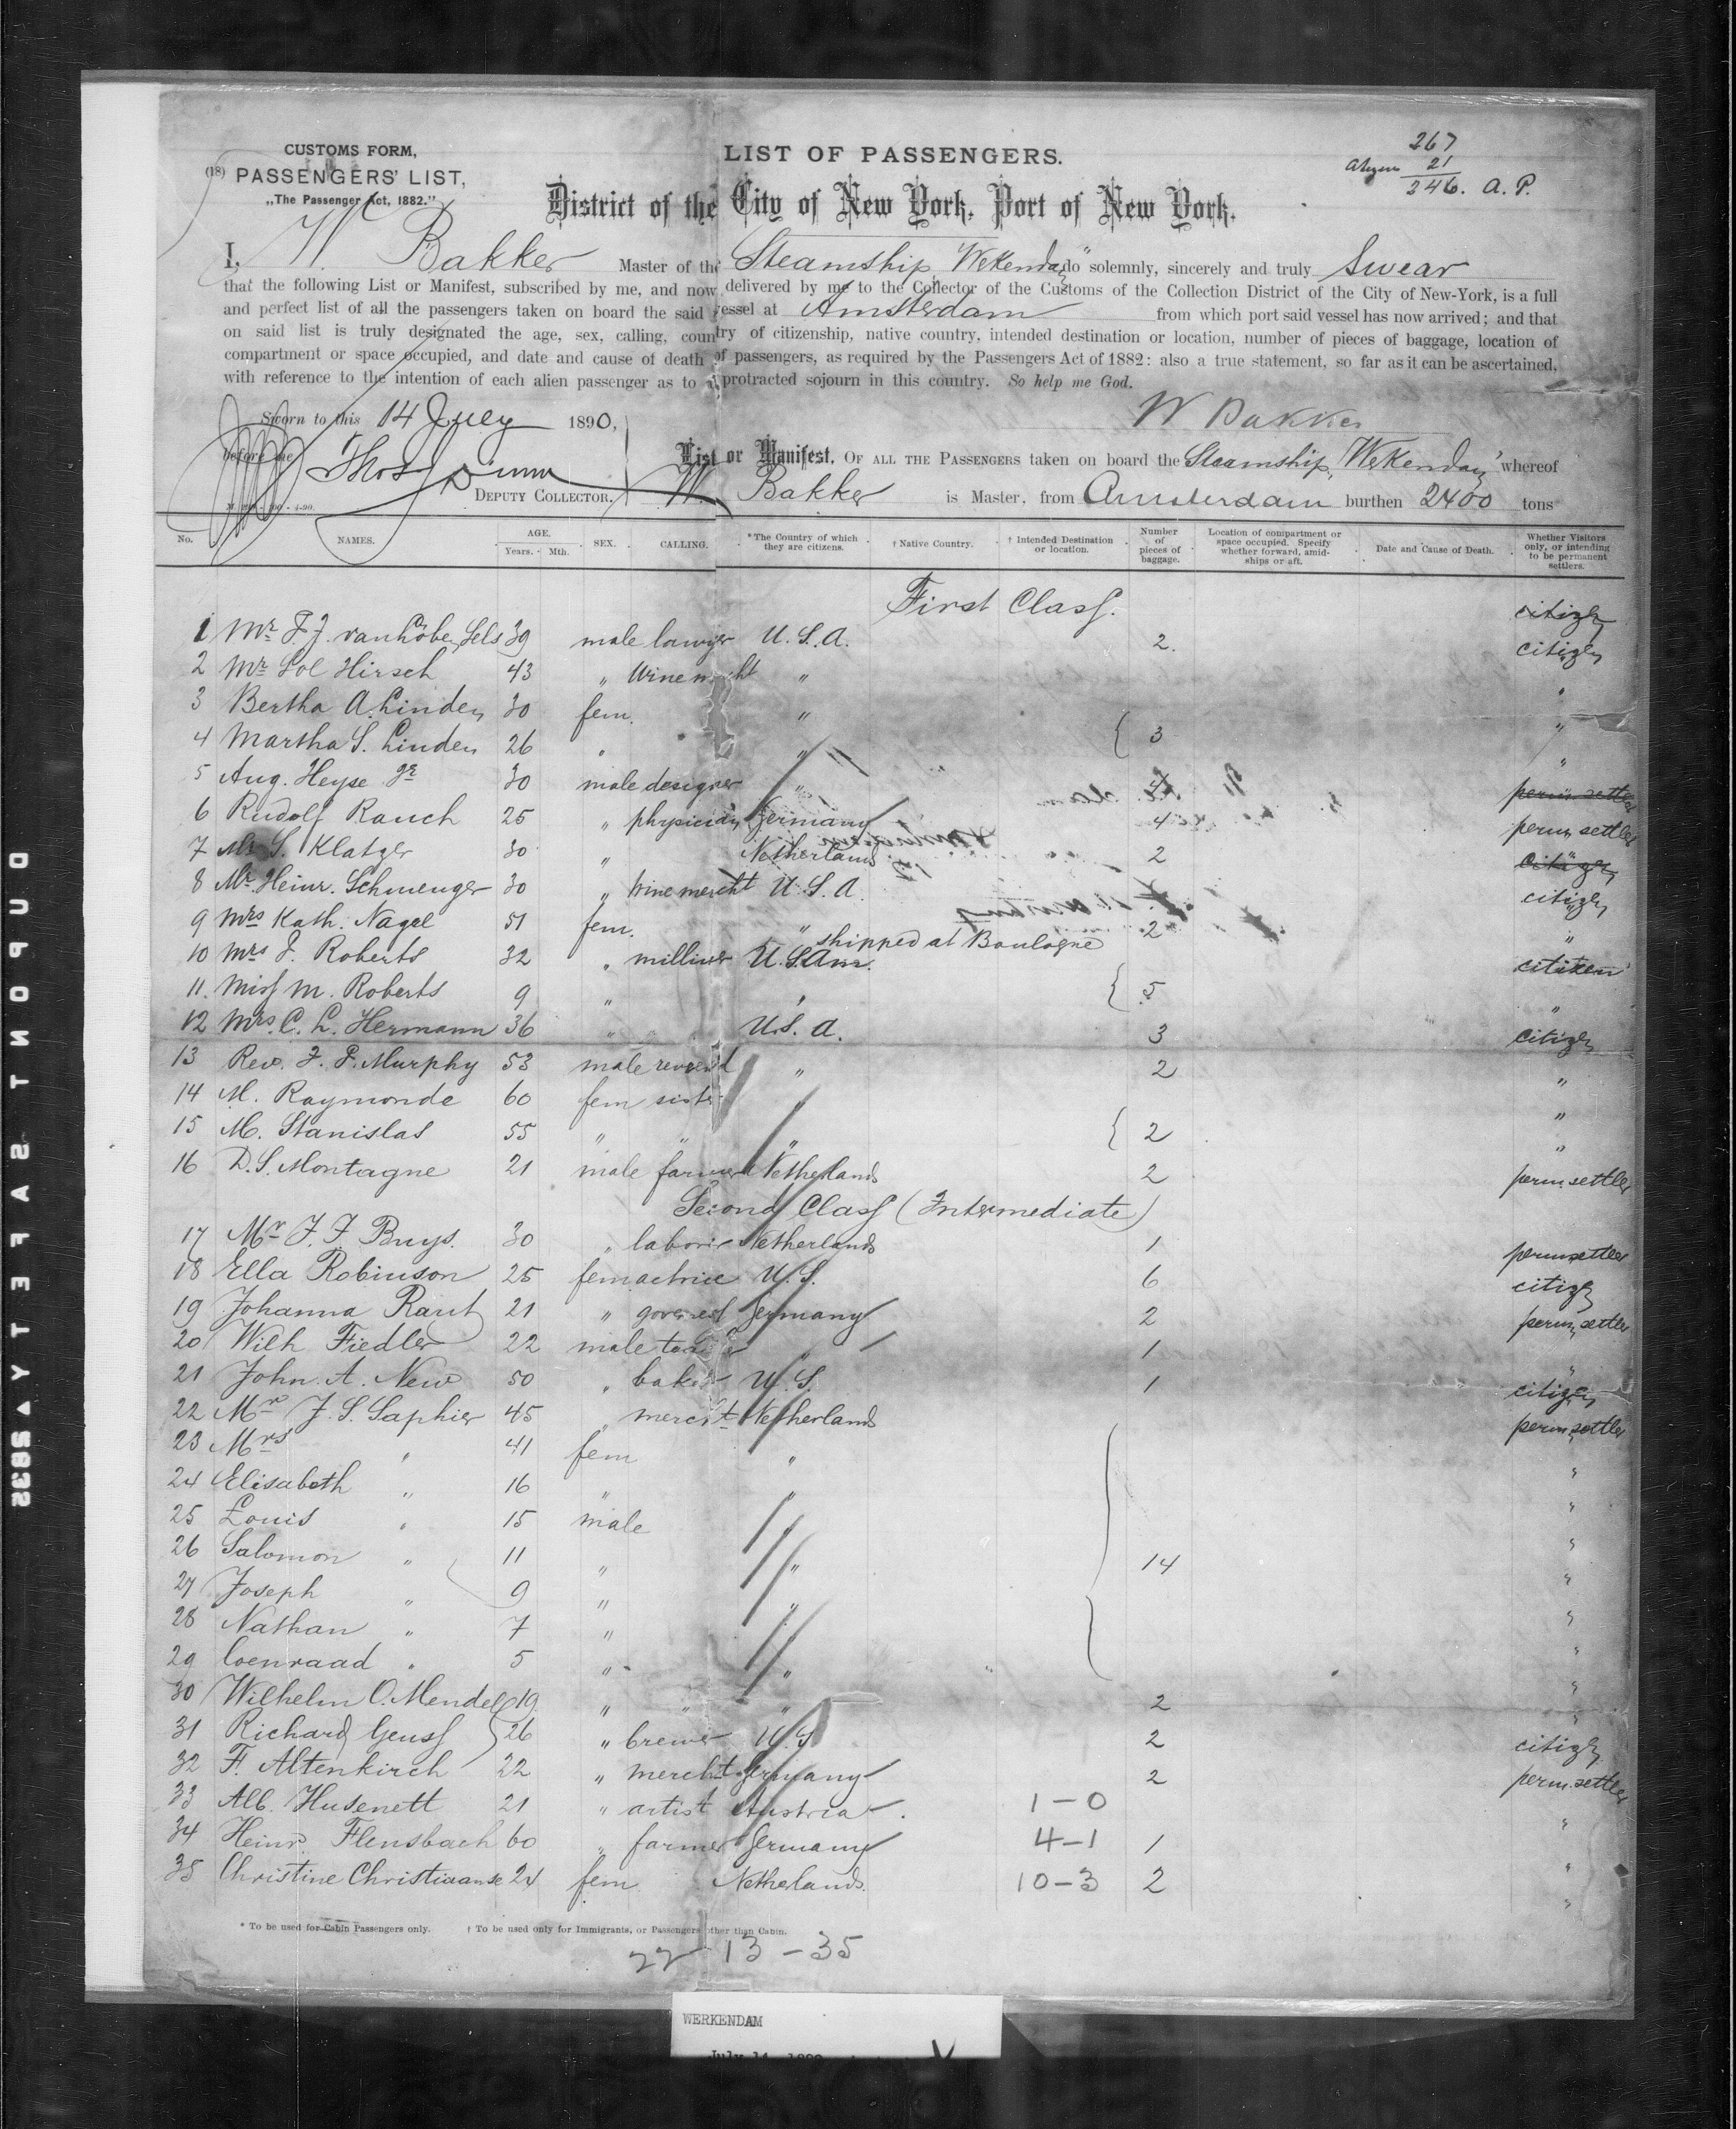 CUSTOMS FORM,
(18) PASSENGERS' LIST,
„The Passenger Act, 1882."
LIST OF PASSENGERS.
267
21
246. A. P.
District of the City of New York, Port of New York.
I, W. Bakker Master of the Steamship „Wekendam" do solemnly, sincerely and truly swear
that the following List or Manifest, subscribed by me, and now delivered by me to the Collector of the Customs of the Collection District of the City of New-York, is a full
and perfect list of all the passengers taken on board the said vessel at Amsterdam from which port said vessel has now arrived; and that
on said list is truly designated the age, sex, calling, country of citizenship, native country, intended destination or location, number of pieces of baggage, location of
compartment or space occupied, and date and cause of death of passengers, as required by the Passengers Act of 1882: also a true statement, so far as it can be ascertained,
with reference to the intention of each alien passenger as to a protracted sojourn in this country. So help me God.
Sworn to this 14 July 1890,
W Bakker
before me Thos Dunn
DEPUTY COLLECTOR.
List or Manifest, OF ALL THE PASSENGERS taken on board the Steamship „Wekendam" whereof
W. Bakker is Master, from Amsterdam burthen 2400 tons
No. NAMES. AGE. Years. Mth. SEX. CALLING. *The Country of which they are citizens. † Native Country. † Intended Destination or location. Number of pieces of baggage. Location of compartment or space occupied. Specify whether forward, amidships or aft. Date and Cause of Death. Whether Visitors only, or intending to be permanent settlers.
First Class.
citizen
1 Mr F. J. van Löben Sels 39 male lawyer U. S. A. 2. citizen
2 Mr Sol Hirsch 43 „ Wine mercht „ „
3 Bertha A. Linden 30 fem. „ „
4 Martha S. Linden 26 „ „ 3 „
5 Aug. Heyse Jr 30 male designer „ perm. settler
6 Rudolf Rauch 25 „ physician Germany 4 perm. settler
7 S. Klatzer 30 „ Netherlands 2 citizen
8 Mr. Heinr. Schmenger 30 „ wine mercht U. S. A. citizen
9 Mrs Kath. Nagel 51 fem. „ 2 „
shipped at Boulogne
10 Mrs J. Roberts 32 „ milliner U. S. Am. citizen
11. Miss M. Roberts 9 „ „ 5 „
12 Mrs. C. L. Hermann 36 „ „ U. S. A. 3 citizen
13 Rev. J. P. Murphy 53 male reverend „ 2 „
14 M. Raymonde 60 fem sister „ „
15 M. Stanislas 55 „ „ „ 2 „
16 D. S. Montagne 21 male farmer Netherlands 2 perm. settler
Second Class (Intermediate)
17 Mr J. J. Buys. 30 „ laborer Netherlands 1 perm. settler
18 Ella Robinson 25 fem actrice U. S. 6 citizen
19 Johanna Raut 21 „ governess Germany 2 perm. settler
20 Wilh Fiedler 22 male „ 1 „
21 John. A. New 50 „ baker U. S. 1 citizen
22 Mr J. S. Saphier 45 „ mercht Netherlands perm. settler
23 Mrs „ 41 fem „ „
24 Elisabeth „ 16 „ „ „
25 Louis „ 15 male „ „
26 Salomon „ 11 „ „ 14 „
27 Joseph „ 9 „ „ „
28 Nathan „ 7 „ „
29 Coenraad „ 5 „ „ „
30 Wilhelm O. Mendel 19. „ „ „ 2 „
31 Richard Geuss 26 „ brewer U. S. 2 citizen
32 F. Altenkirch 22 „ mercht Germany 2 perm. settler
33 Alb. Husenett 21 „ artist Austria 1 - 0 „
34 Heinr. Flensbach 60 „ farmer Germany 4 - 1 1 „
35 Christine Christiaanse 24 fem Netherlands. 10 - 3 2 „
* To be used for Cabin Passengers only. † To be used only for Immigrants, or Passengers other than Cabin.
22 - 13 - 35
WERKENDAM
July 14, 1890
DUPONT SAFETY 5835